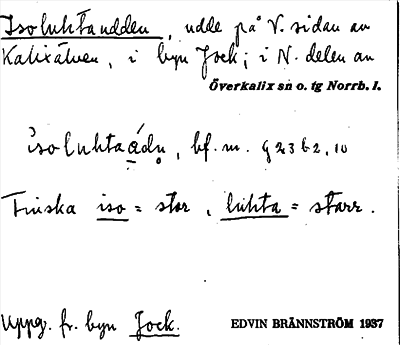 Isoluhtaudden, udde på V. sidan av
Kalixälven, i byn Jock; i N. delen av
Överkalix sn o. tg Norrb. l.
isoluhtaádn, bf. m. 923b2,10
Finska iso = stor, luhta = starr.
Uppg. fr. byn Jock.
EDVIN BRÄNNSTRÖM 1937